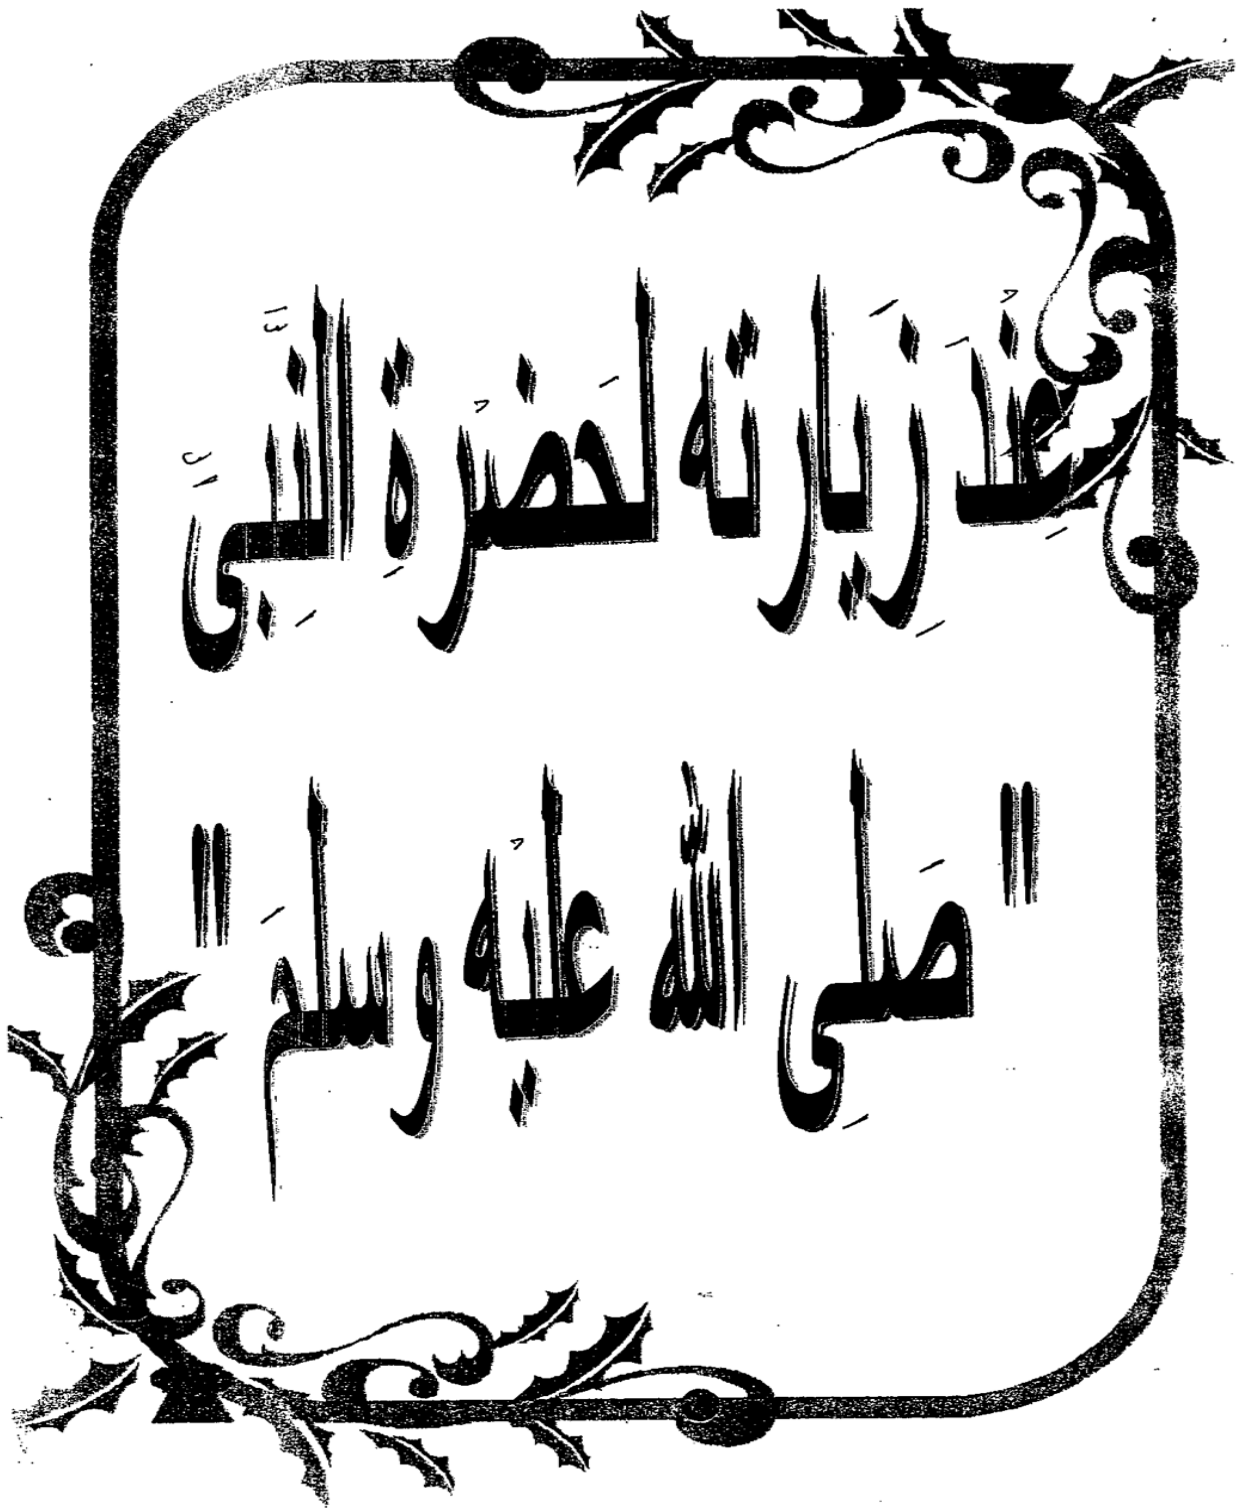 عِنْدَ زِيَارته لَحَضْرَةِ النَّبِىِّ
"صَلِى الله عليْه وسلمَ"